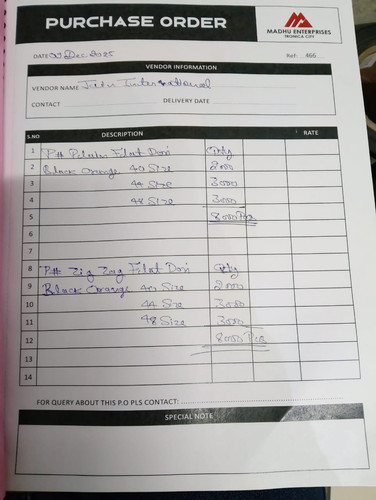 PURCHASE ORDER
MADHU ENTERPRISES
TRONICA CITY
DATE Dec 2025 Ref: 466
VENDOR INFORMATION
VENDOR NAME International
CONTACT DELIVERY DATE
S.NO DESCRIPTION RATE
1 Flat Dori Qty
2 Black Orange 40 Size 2000
3 44 Size 3000
4 48 Size 3000
5 8000 Pcs
6
7
8 Zig Zag Flat Dori Qty
9 Black Orange 40 Size 2000
10 44 Size 3000
11 48 Size 3000
12 8000 Pcs
13
14
FOR QUERY ABOUT THIS P.O PLS CONTACT:
SPECIAL NOTE